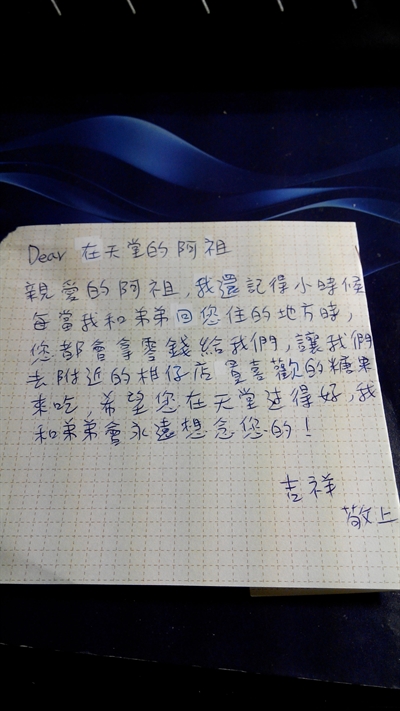 Dear 在天堂的阿祖
親愛的阿祖,我還記得小時候
每當我和弟弟回您住的地方時,
您都會拿零錢給我們,讓我們
去附近的柑仔店買喜歡的糖果
來吃,希望您在天堂过得好,我
和弟弟會永遠想念您的!
吉祥
敬上